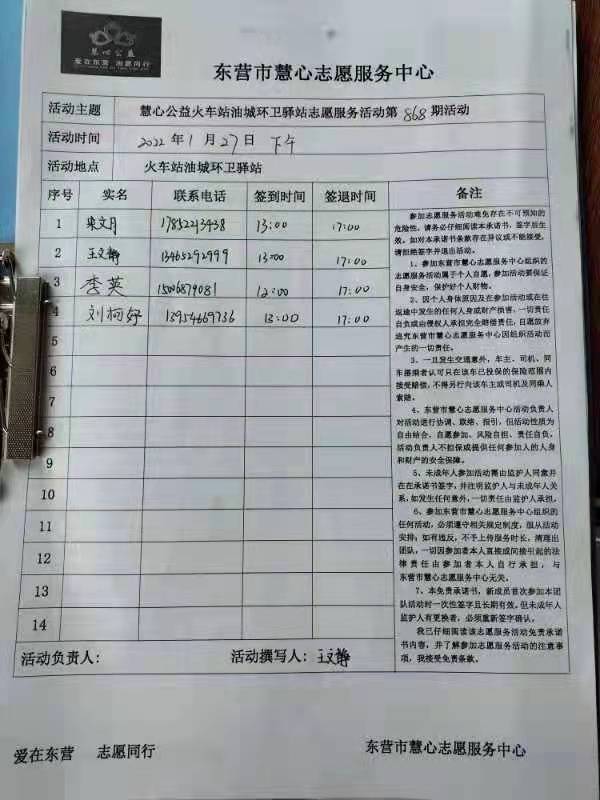 慧心公益
爱在东营 志愿同行
东营市慧心志愿服务中心
活动主题 慧心公益火车站油城环卫驿站志愿服务活动第868期活动
活动时间 2022年1月27日 下午
活动地点 火车站油城环卫驿站
序号 实名 联系电话 签到时间 签退时间 备注
1 文月 17852213438 13:00 17:00
2 王文静 13465292999 13:00 17:00
3 李英 15006879081 12:00 17:00
4 刘柯妤 13954669736 13:00 17:00
5
6
7
8
9
10
11
12
13
14
参加志愿服务活动难免存在不可预知的
危险性,请务必仔细阅读本承诺书,签字后生
效。如对本承诺书条款存在异议或不能接受,
请拒绝签字并退出活动。
1、参加东营市慧心志愿服务中心组织的
志愿服务活动属于个人自愿,参加活动要保证
自身安全,保护好个人财物。
2、因个人身体原因及在参加活动或在往
返途中发生的任何人身或财产损害,一切责任
自负或由侵权人承担完全赔偿责任,自愿放弃
追究东营市慧心志愿服务中心因组织活动而
产生的一切责任。
3、一旦发生交通意外,车主、司机、同
车搭乘者认可只在该车已投保的保险范围内
接受赔偿,不得另行向该车主或司机及同乘人
索赔。
4、东营市慧心志愿服务中心活动负责人
对活动进行协调、联络、报引,但活动性质为
自由结合、自愿参加、风险自担、责任自负,
活动负责人不担保或提供任何参加人的人身
和财产的安全保障。
5、未成年人参加活动需由监护人同意并
在在承诺书签字,并注明监护人与未成年人关
系,如发生任何意外,一切责任由监护人承担。
6、参加东营市慧心志愿服务中心组织的
任何活动,必须遵守相关规定制度,服从活动
安排;如有违反,不予上传服务时长,清理出
团队,一切因参加者本人直接或间接引起的法
律责任由参加者本人自行承担,与
东营市慧心志愿服务中心无关。
7、本免责承诺书,新成员首次参加本团
队活动时一次性签字且长期有效。但未成年人
监护人有更换者,必须重新签字确认。
我已仔细阅读该志愿服务活动免责承诺
书内容,并了解参加志愿服务活动的注意事
项,我接受免责条款。
活动负责人: 活动撰写人:王文静
爱在东营 志愿同行 东营市慧心志愿服务中心